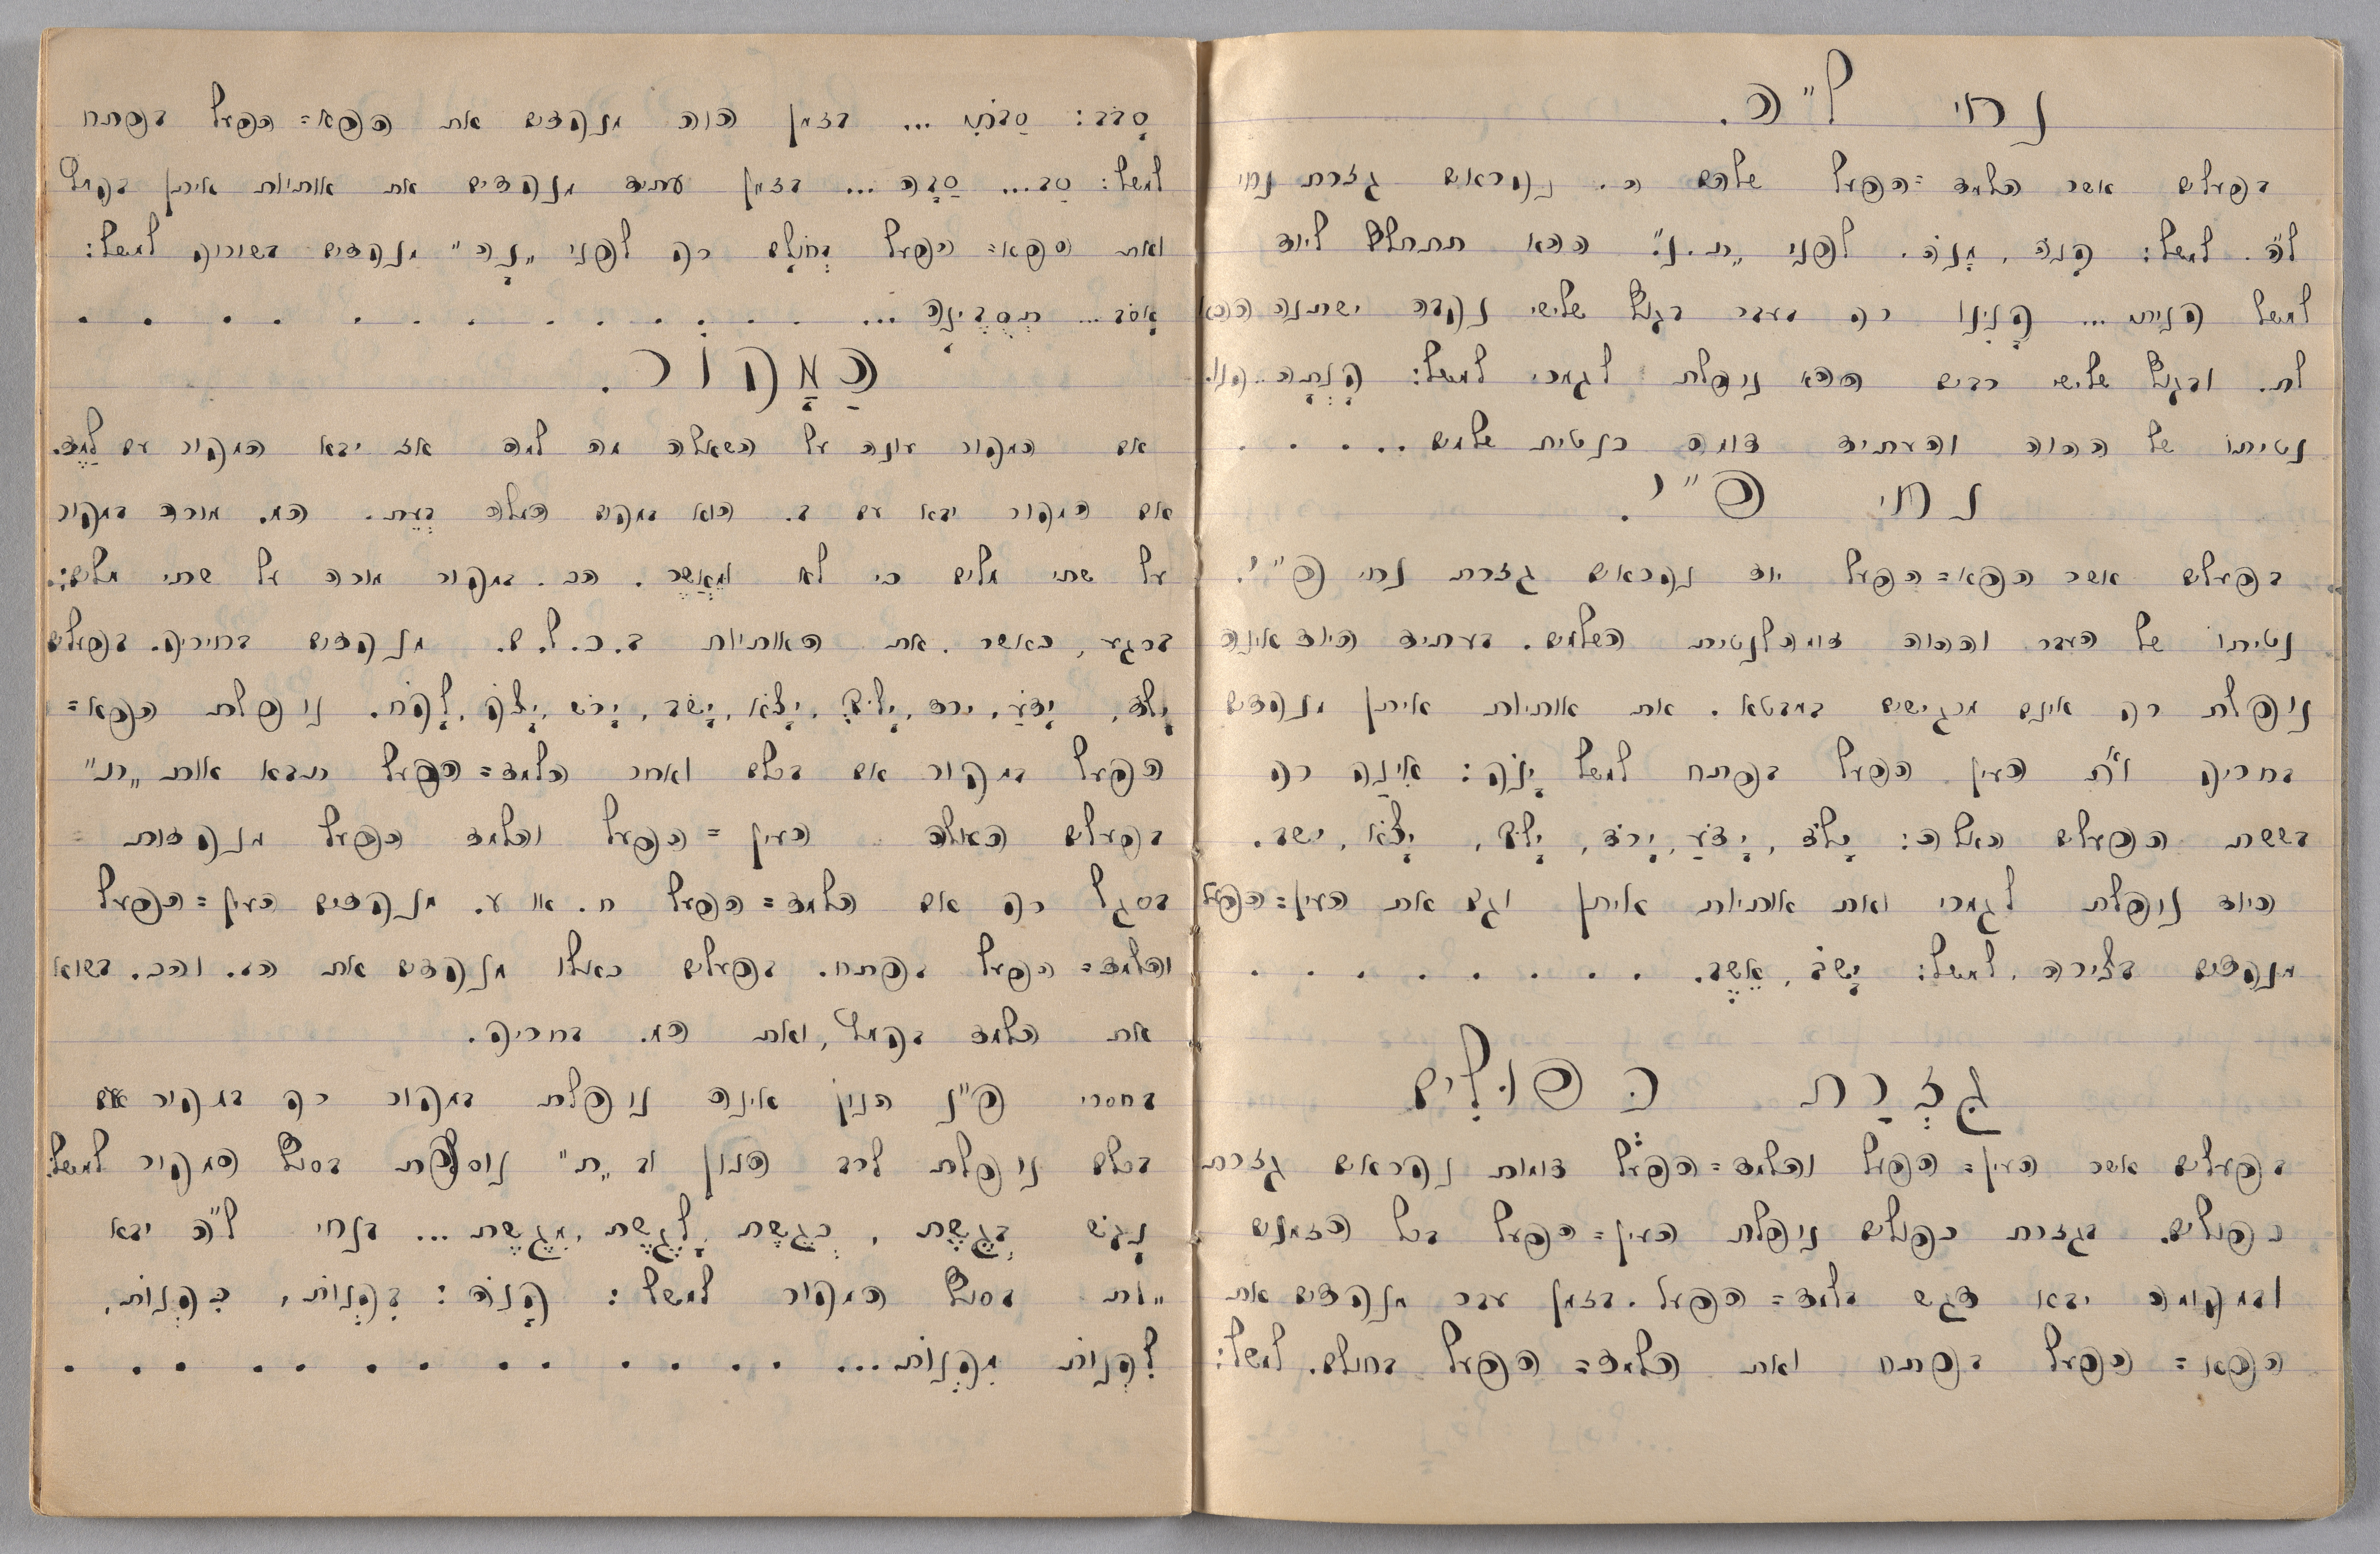 נחי ל"ה.
בפעלים אשר הלמד=הפעל שלהם ה. נקראים גזרת נחי
ל"ה. למשל: קָנֹה, מָנֹה. לפני „ת.נ." ההא תתחלף ליוד
למשל קנית... קָנִינוּ רק בעבר בגוף שלישי נקבה ישתנה ההא
לת. ובגוף שלישי רבים ההא נופלת לגמרי למשל: קָנְתָה..קנו.
נטיתו של ההוה והעתיד דומה כנטית שלמים.....
נחי פ"י.
בפעלים אשר הפא=הפעל יוד נקראים גזרת נחי פ"י.
נטיתו של העבר וההוה דומה לנטית השלמים. בעתיד היוד אינה
נופלת רק אינם מרגישים במבטא. את אותיות איתן מנקדים
בחריק וא"ת העין הפעל בפתח למשל יָנֹק: אִינַק רק
בששת הפעלים האלה: יָלֹד, יָדֹעַ, יָרֹד, יָלֹךְ, יָצֹא, ישב.
היוד נופלת לגמרי ואת אותיות איתן וגם את העין=הפעל
מנקדים בצירה, למשל: יָשֹׁב, אֵשֵׁב. . . . . . . . .
גִּזְרַת כְּפוּלִים
בפעלים אשר העין=הפעל והלמד=הפעל דומות נקראים גזרת
כפולים. בגזרת כפולים נופלת העין=הפעל בכל הזמנים
ובמקומה יבא דגש בלמד=הפעל. בזמן עבר מנקדים את
הפא=הפעל בפתח ואת הלמד=הפעל בחולם. למשל:
סָבֹב: סַבֹּתִי... בזמן הוה מנקדים את הפא=הפעל בפתח
למשל: סַב... סַבָּה... בזמן עתיד מנקדים את אותיות איתן בקמץ
ואת הפא=הפעל בְּחוֹלָם רק לפני „נָה" מנקדים בשורוק למשל:
אָסֹב... תְּסֻבֶּינָה... . . . . . . . . . . . .
הַמָּקוֹר.
אם המקור עונה על השאלה מה למה אז יבא המקור עם לָמֶד.
אם המקור יבא עם ב. הוא במקום המלה בְּעֵת. המ. מורה במקור
על שתי מלים כי לא וּמֵאֲשֶׁר. הכ. במקור מורה על שתי מלים:.
ברגע, כאשר. את האותיות ב.כ.ל.מ. מנקדים בחיריק. בפעלים
יָלֹד, יָדֹעַ, ירד, יָלֹךְ, יָצֹא, יָשֹׁב, יָרֹשׁ, יָצֹק, לָקֹח. נופלת הפא=
הפעל במקור אם בכלם ואחר הלמד=הפעל תבא אות „ת"
בפעלים האלה העין=הפעל והלמד הפעל מנקדות
בסגל רק אם הלמד=הפעל ח. או ע. מנקדים העין=הפעל
והלמד=הפעל בפתח. בפעלים כאילו מנקדים את הב. והכ. בשוא
את הלמד בקמץ, ואת המ. בחריק.
בחסרי פ"נ הנון אינה נופלת במקור רק במקור אם
בכלם נופלת לרב הנון וב „ת" נוספת בסוף המקור למשל:
נָגֹשׁ בְּגֶשֶׁת, כְּגֶשֶׁת, לָגֶשֶׁת, מִגֶּשֶׁת... בנחי ל"ה יבא
„ות בסוף המקור למשל: קָנֹה: בִּקְנוֹת, כִּקְנוֹת,
לִקְנוֹת מִקְּנוֹת... . . . . . . . . . . . .